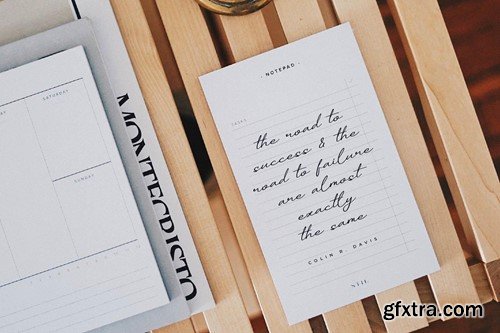 SATURDAY
SUNDAY
MONTECRISTO
· NOTEPAD ·
TASKS
the road to
success & the
road to failure
are almost
exactly
the same
COLIN R. DAVIS
gfxtra.com